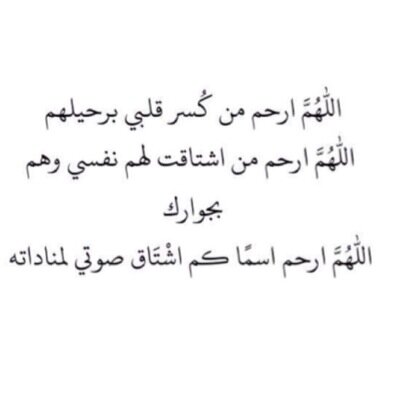 اللهُمَّ ارحم من كُسر قلبي برحيلهم
اللهُمَّ ارحم من اشتاقت لهم نفسي وهم
بجوارك
اللهُمَّ ارحم اسمًا كم اشْتَاق صوتي لمناداته